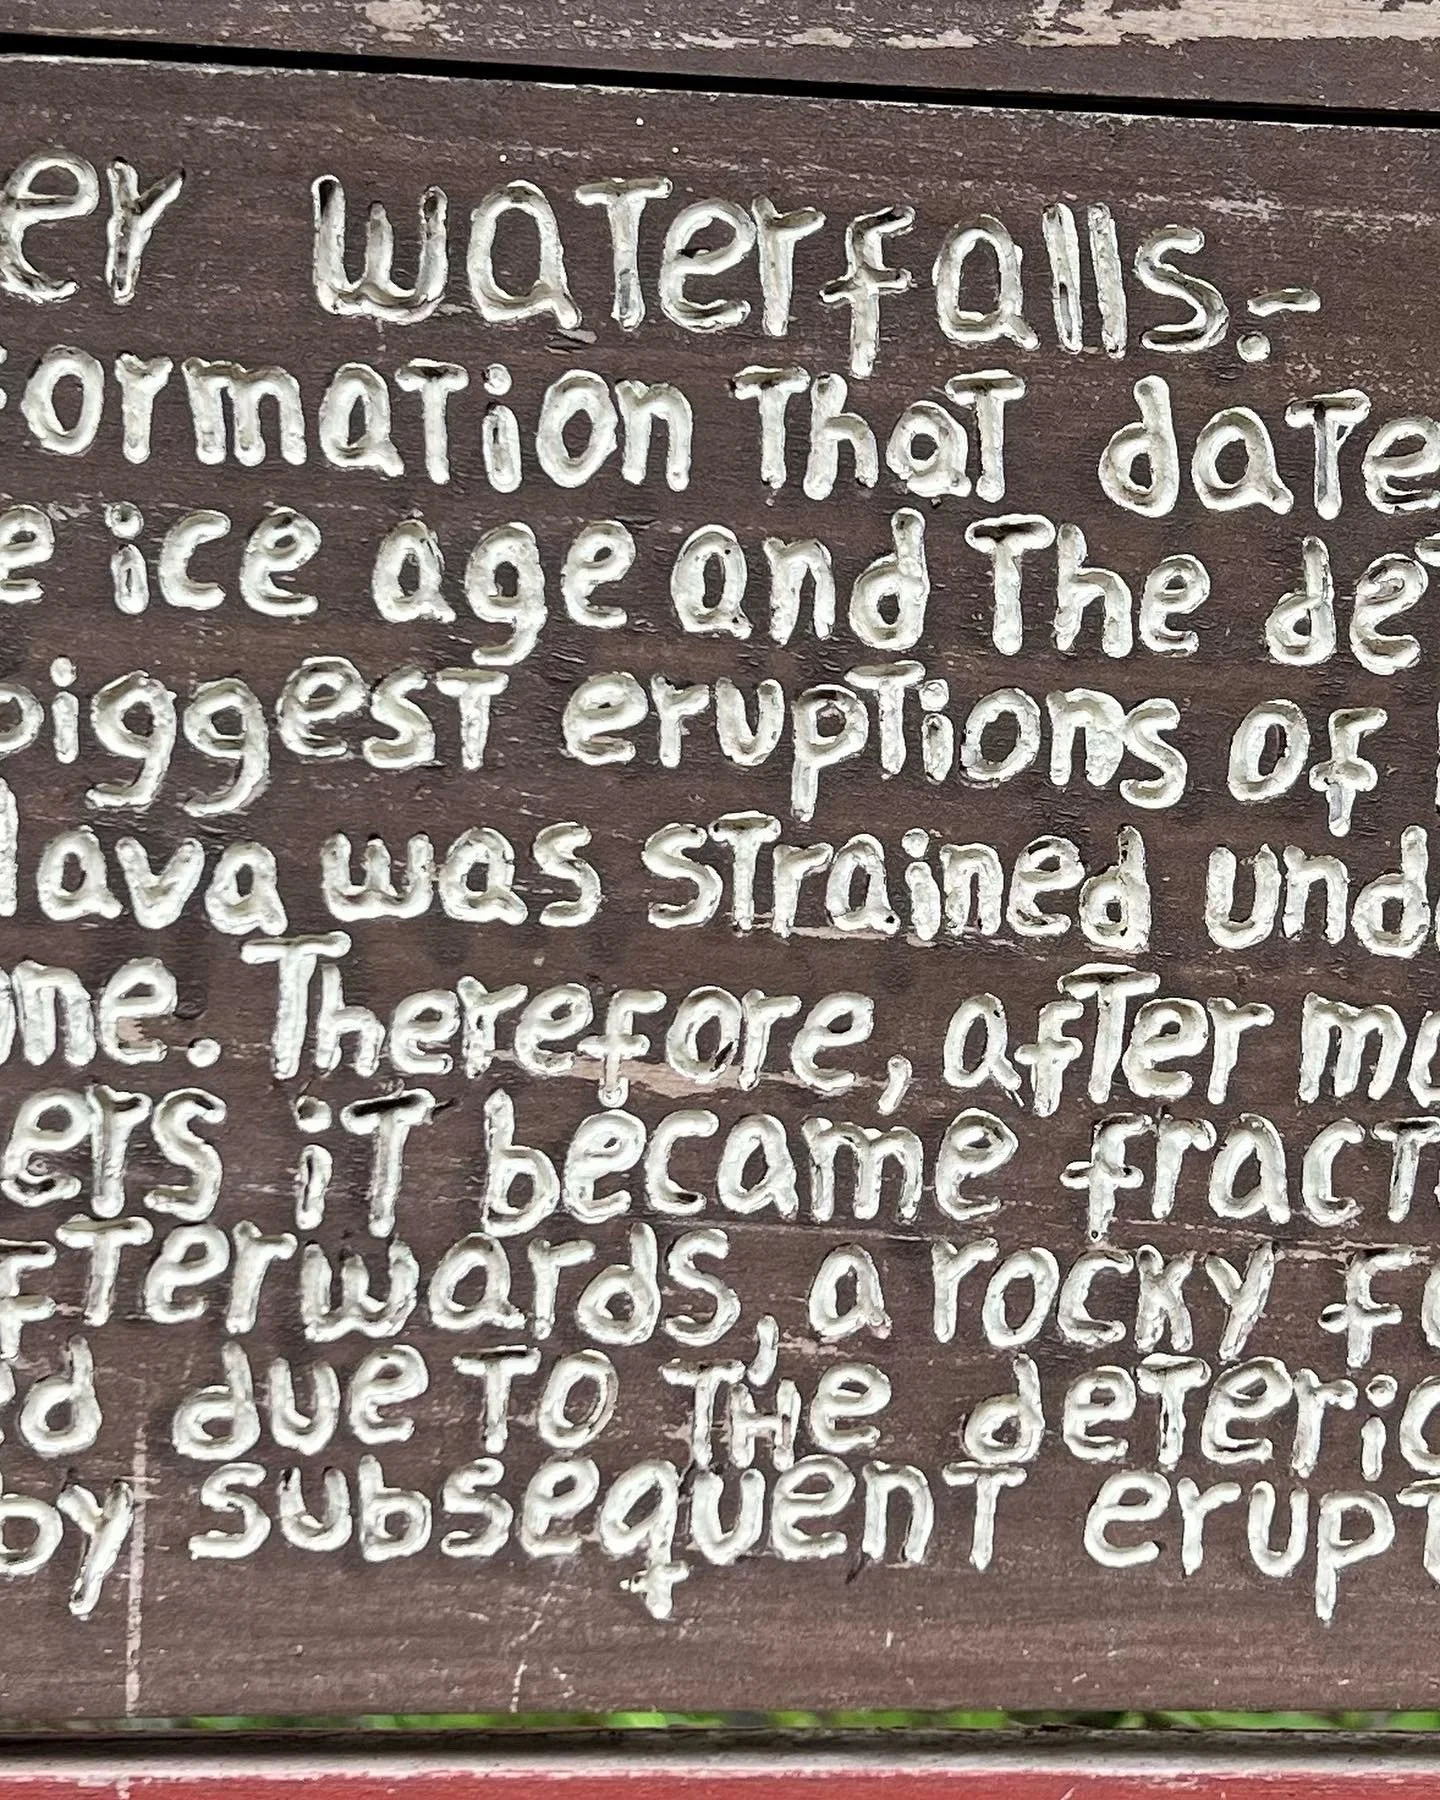 er waterfalls.-
formation that date
e ice age and the det
biggest eruptions of
lava was strained und
me. Therefore, after mo
ers it became fract
fterwards, a rocky fo
d due to the deterio
by subsequent erupt